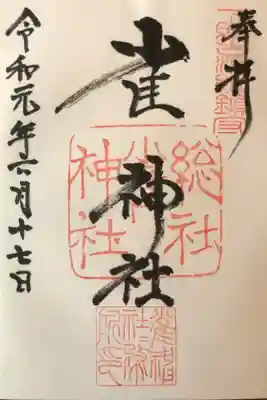 奉拝
雀神社
総社
雀
神社
令和元年六月十七日